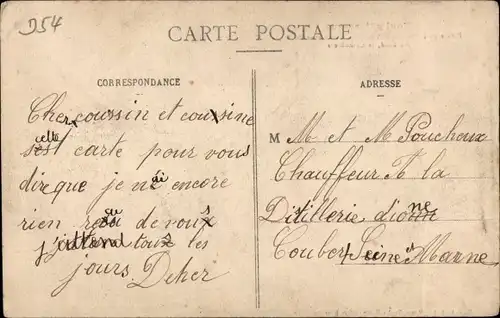 D54
CARTE POSTALE
CORRESPONDANCE
Cher coussin et cousine
cette carte pour vous
dire que je n'ai encore
rien reçu de vous
j'jittend tous les
jours. Deher
ADRESSE
M M et M Poucheux
Chauffeur A la
Distillerie d'ione
Coubert Seine et Marne